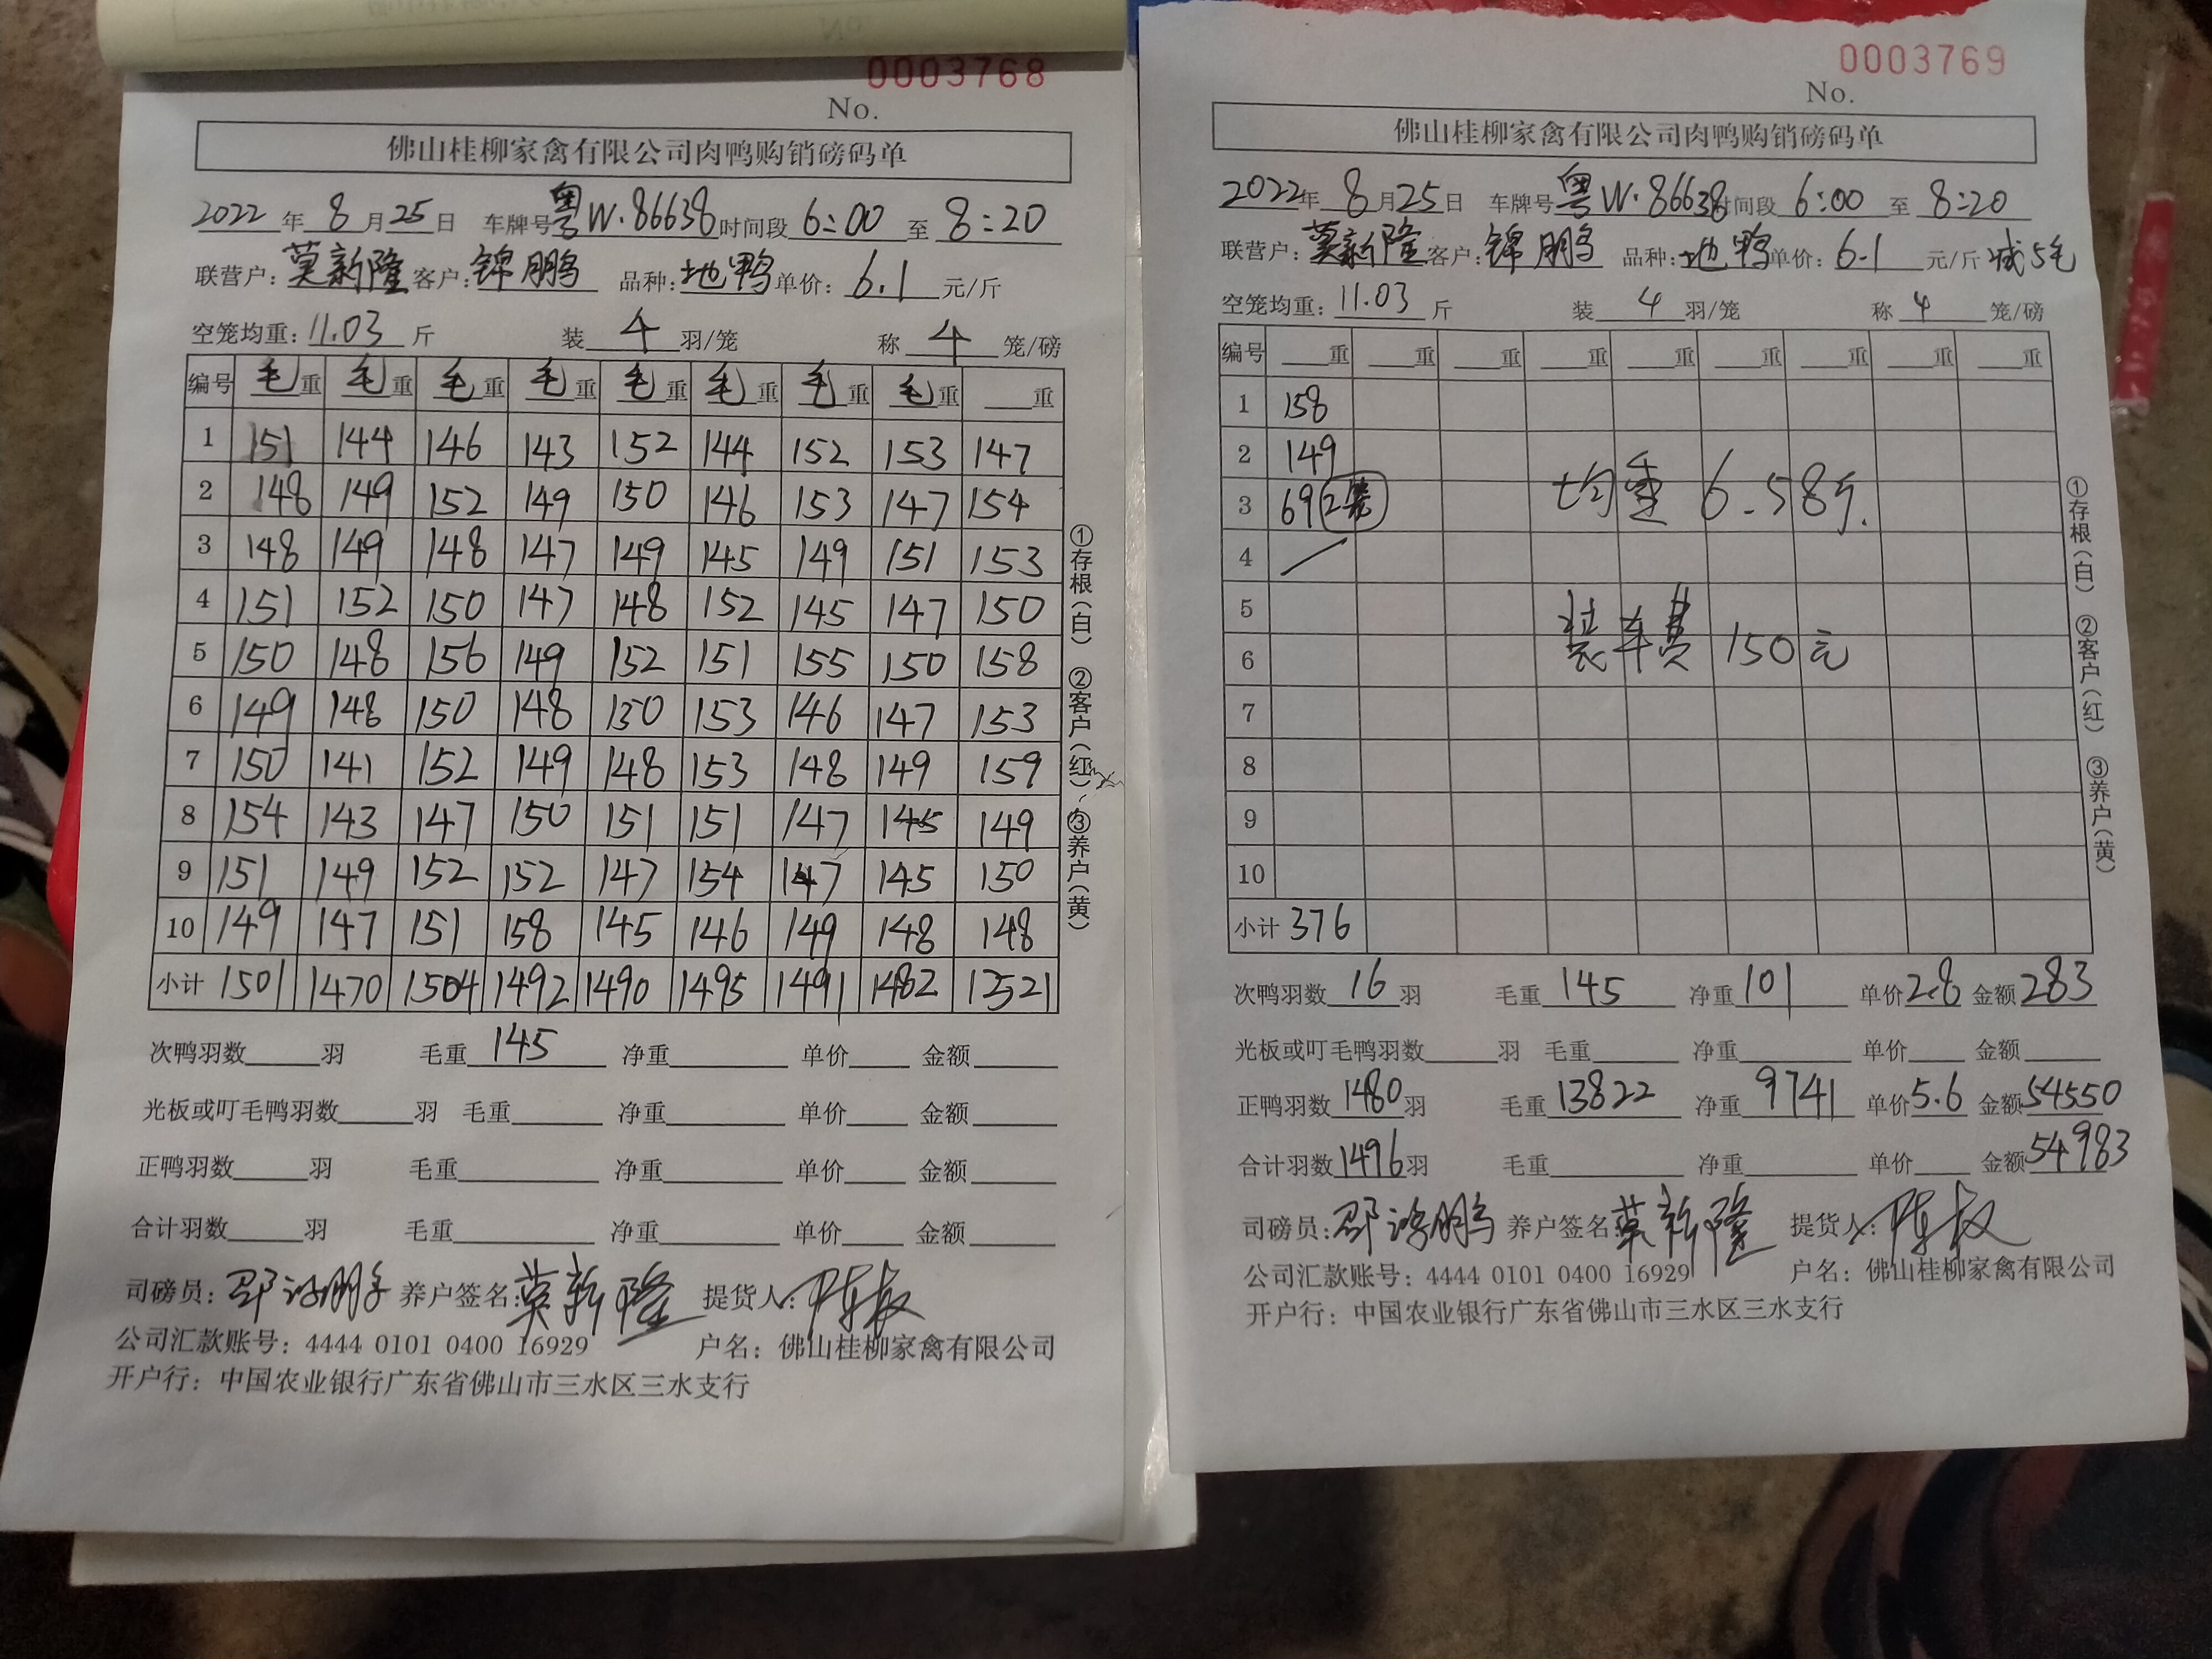 0003768
No.
佛山桂柳家禽有限公司肉鸭购销磅码单
2022年 8月25日 车牌号粤W·86638时间段6:00至8:20
联营户:莫新隆客户:锦鹏 品种:地鸭单价:6.1元/斤
空笼均重:11.03斤 装4羽/笼 称4笼/磅
编号 毛重 毛重 毛重 毛重 毛重 毛重 毛重 毛重 重
1 151 144 146 143 152 144 152 153 147
2 148 149 152 149 150 146 153 147 154
3 148 149 148 147 149 145 149 151 153
4 151 152 150 147 148 152 145 147 150
5 150 148 156 149 152 151 155 150 158
6 149 148 150 148 150 153 146 147 153
7 150 141 152 149 148 153 148 149 159
8 154 143 147 150 151 151 147 145 149
9 151 149 152 152 147 154 147 145 150
10 149 147 151 158 145 146 149 148 148
小计 1501 1470 1504 1492 1490 1495 1491 1482 1521
①存根(白) ②客户(红) ③养户(黄)
次鸭羽数 羽 毛重145 净重 单价 金额
光板或叮毛鸭羽数 羽 毛重 净重 单价 金额
正鸭羽数 羽 毛重 净重 单价 金额
合计羽数 羽 毛重 净重 单价 金额
司磅员: 养户签名:莫新隆 提货人:
公司汇款账号:4444 0101 0400 16929 户名:佛山桂柳家禽有限公司
开户行:中国农业银行广东省佛山市三水区三水支行
0003769
No.
佛山桂柳家禽有限公司肉鸭购销磅码单
2022年 8月25日 车牌号粤W·86638时间段6:00至8:20
联营户:莫新隆客户:锦鹏 品种:地鸭单价:6.1元/斤 减5毛
空笼均重:11.03斤 装4羽/笼 称4笼/磅
编号 重 重 重 重 重 重 重 重 重
1 158
2 149
3 69 2笼
均重6.58斤.
4
5
装车费150元
6
7
8
9
10
小计 376
①存根(白) ②客户(红) ③养户(黄)
次鸭羽数16羽 毛重145 净重101 单价2.8 金额283
光板或叮毛鸭羽数 羽 毛重 净重 单价 金额
正鸭羽数1480羽 毛重13822 净重9741 单价5.6 金额54550
合计羽数1496羽 毛重 净重 单价 金额54983
司磅员: 养户签名:莫新隆 提货人:
公司汇款账号:4444 0101 0400 16929 户名:佛山桂柳家禽有限公司
开户行:中国农业银行广东省佛山市三水区三水支行